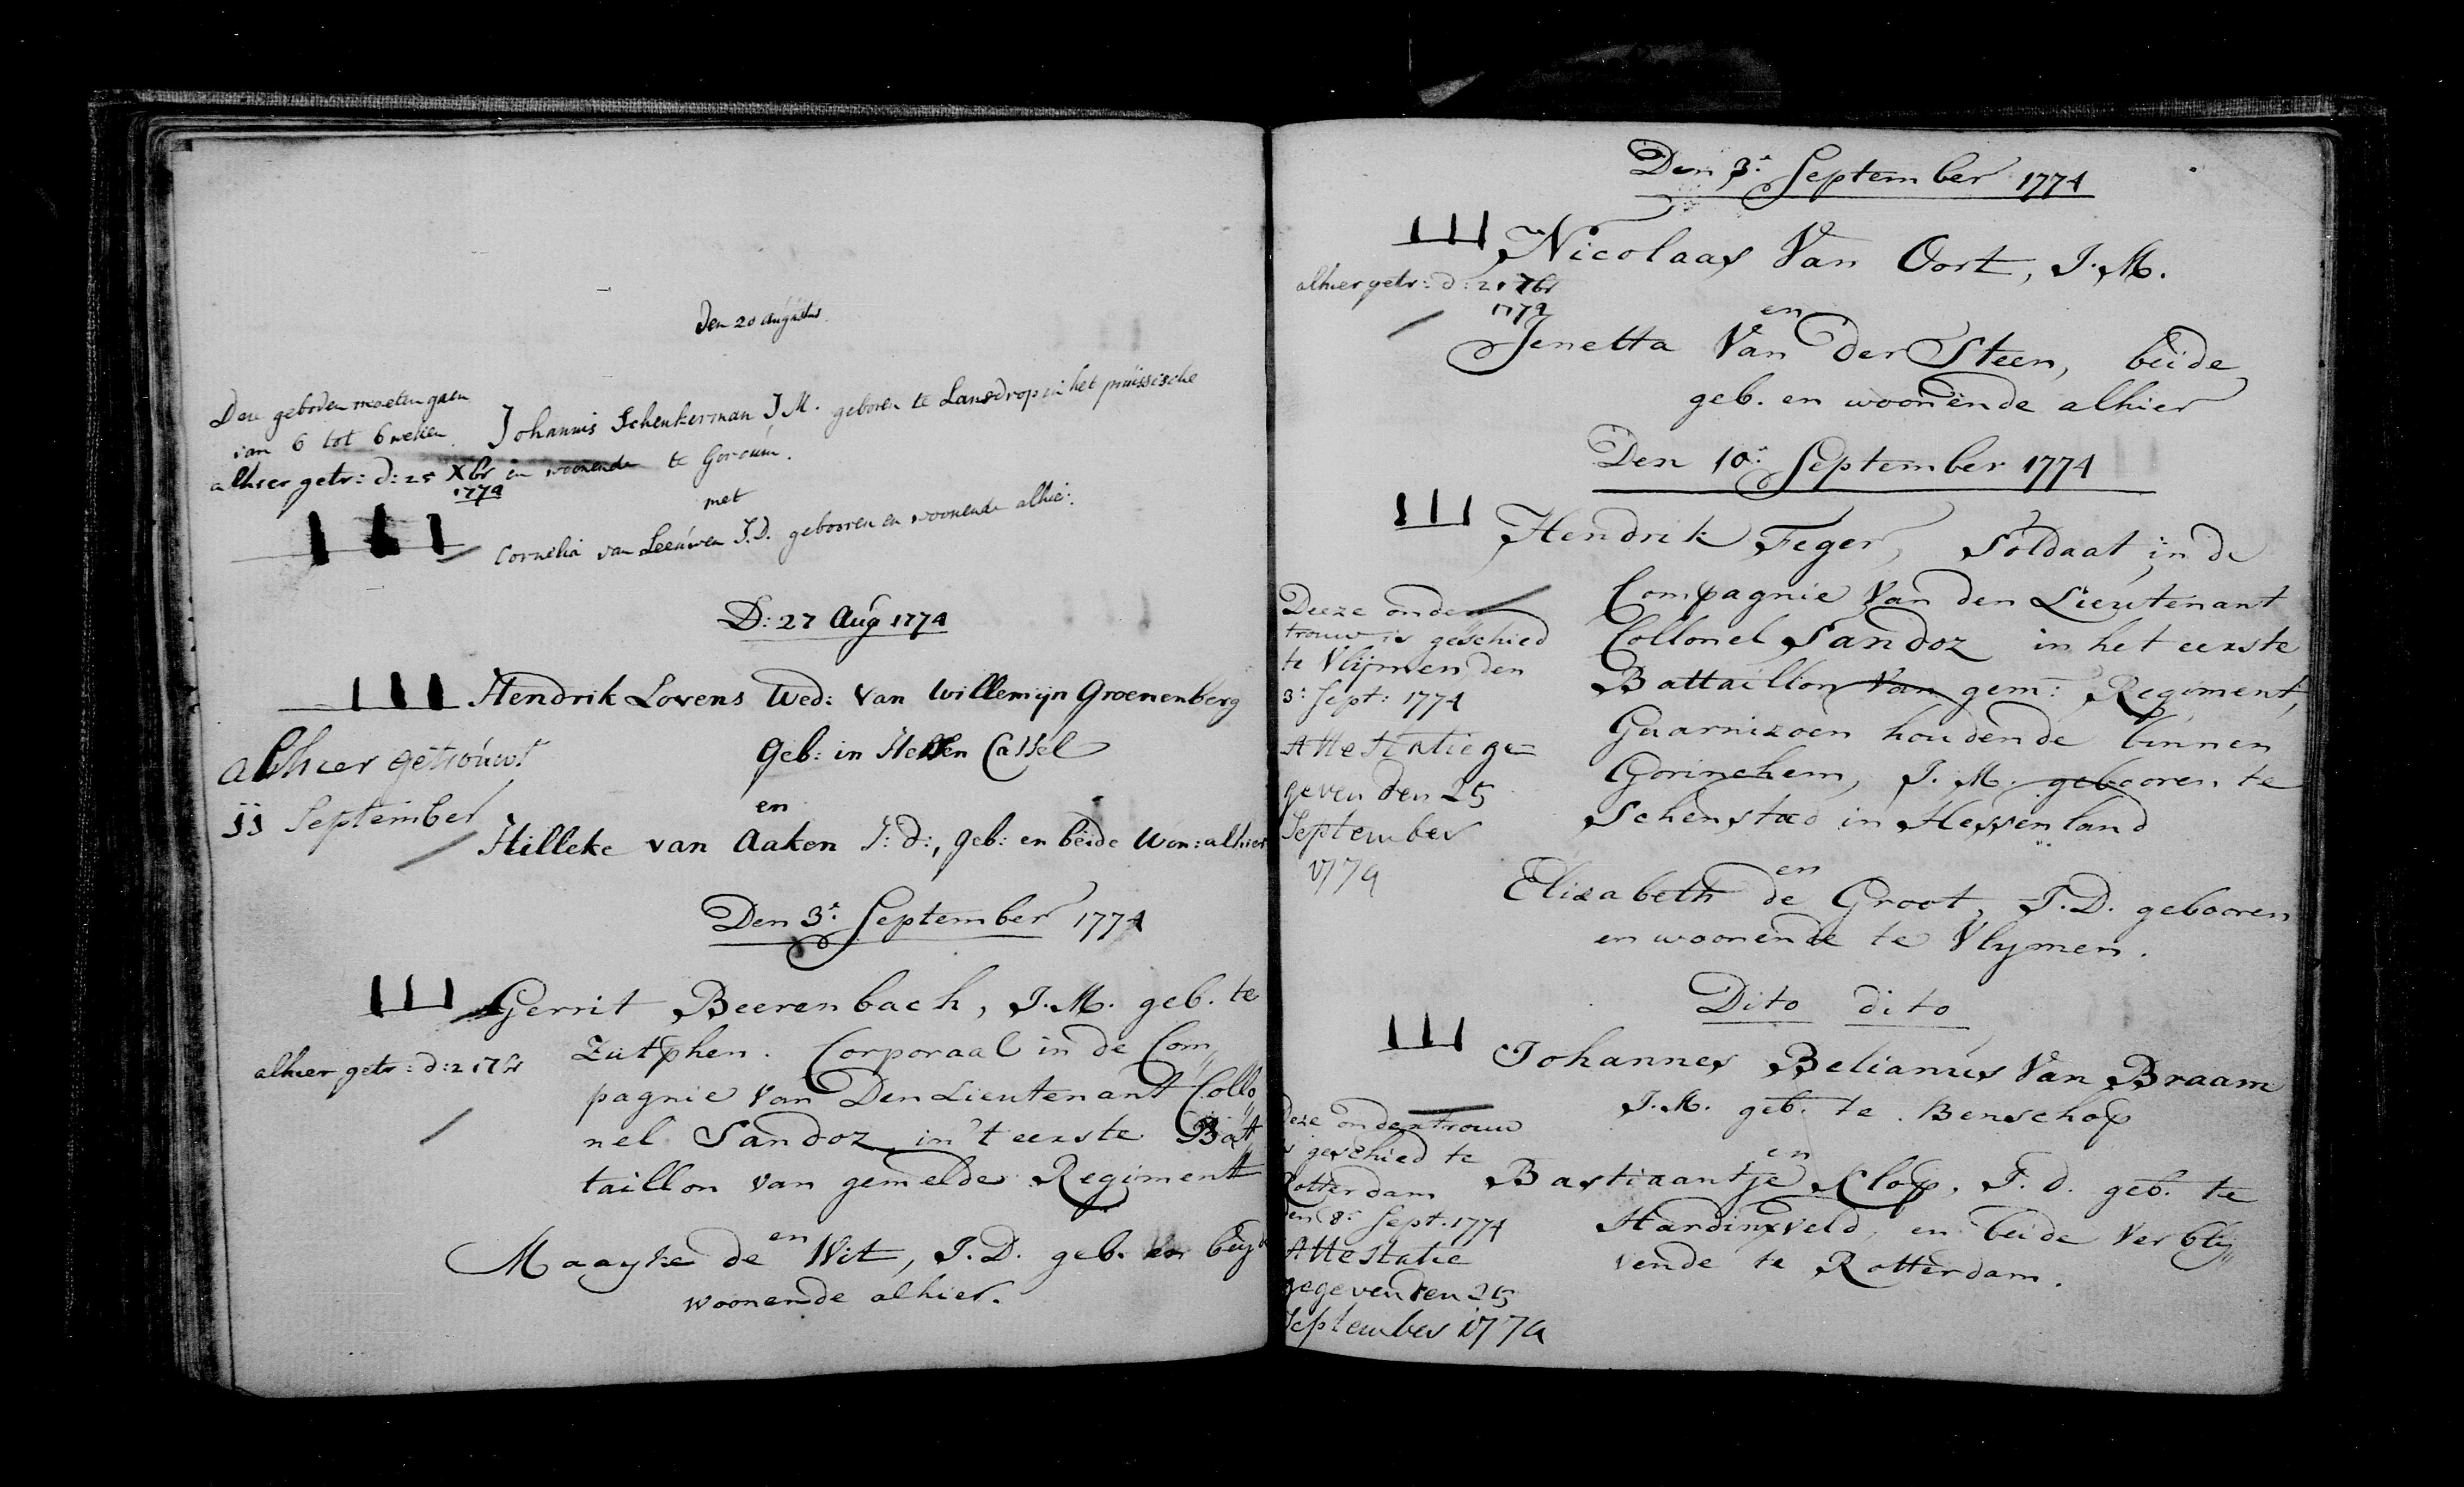 Den 20 Augustus
Deze geboden moeten gaen
van 6 tot 6 weken
alhier getr: d: 25 Xbr
1774
Johannis Schenkerman J. M. geboren te Lansdrop in het pruissische
en woonende te Gorcum.
met
Cornelia van Leeuwen J. D. gebooren en woonende alhie:.
D: 27 Aug 1774
Hendrik Lovens Wed: van Willemijn Groenenberg
Geb: in Hessen Cassel
alhier getrouwt
11 September
en
Hilleke van Aaken J: d:, geb: en beide Won: alhier
Den 3e. September 1774
Gerrit Beerenbach, J. M. geb. te
Zutphen. Corporaal in de Com„
pagnie van Den Lieutenant Collo„
nel Sandoz, in't eerste Bat„
taillon van gemelde Regiment
alhier getr: d: 21 7br
en
Maayke de Wit, J. D. geb. en beyde
woonende alhier.
Den 3e. September 1774
Nicolaas Van Oort, J. M.
alhier getr: d: 21 7br
1774
en
Jenetta Van Der Steen, beide
geb. en woonende alhier
Den 10e. September 1774
Hendrik Feger, Soldaat in de
Compagnie Van den Lieutenant
Collonel Sandoz in het eerste
Battaillon van gem: Regiment,
Guarnizoen houdende binnen
Gorinchem, J. M. gebooren te
Schenstad in Hessenland
Deeze onder
trouw is geschied
te Vlijmen den
3e Sept: 1774
Attestatie ge=
geven den 25
September
1774
en
Elisabeth de Groot, J. D. gebooren
en woonende te Vlymen.
Dito dito
Johannes Belianus Van Braam
J. M. geb. te Benschop
en
Bastiaantje Klop, J. d. geb. te
Hardinxveld, en beide verbly„
vende te Rotterdam.
Deze ondertrouw
is geschied te
Rotterdam
den 8e Sept. 1774
Attestatie
gegeven den 25
September 1774